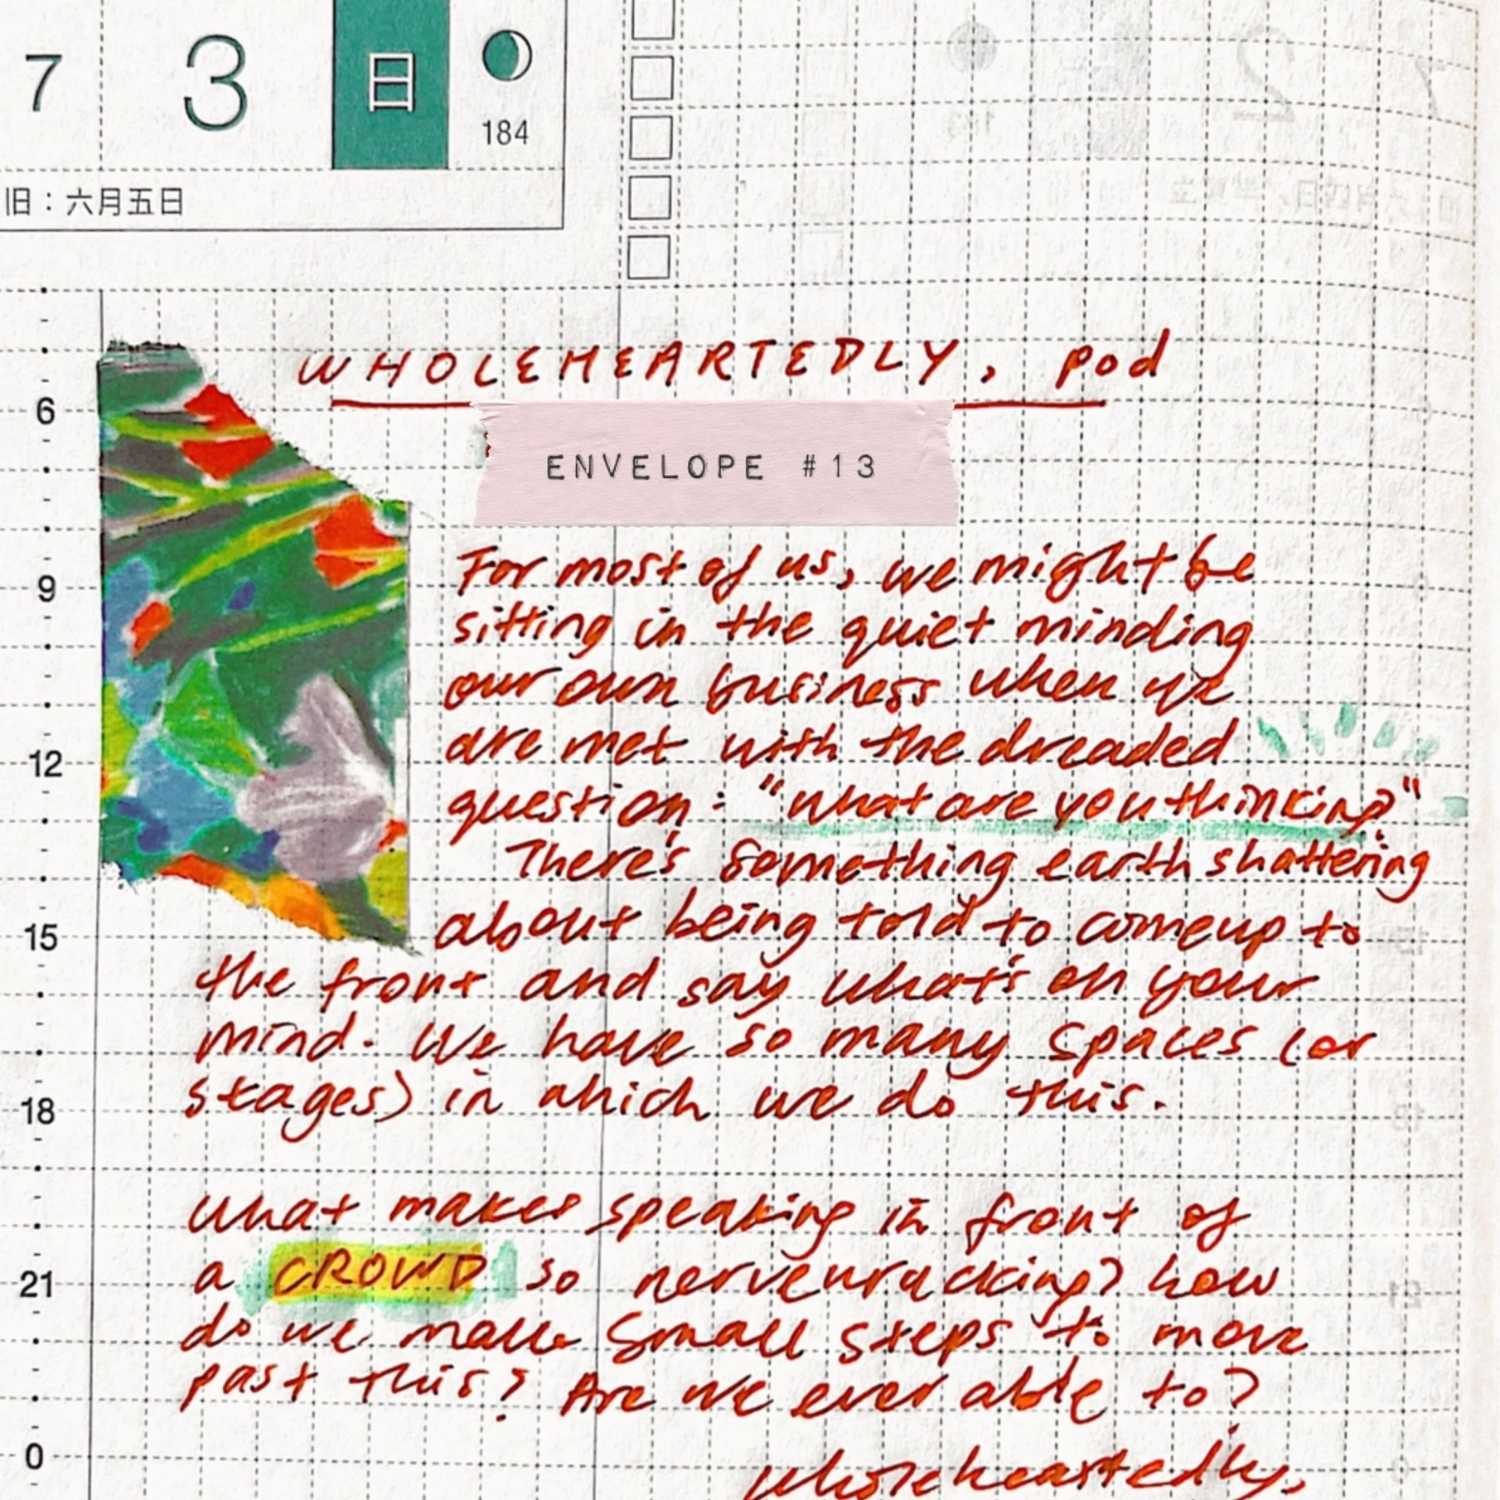 7 3 日
184
旧：六月五日
WHOLEHEARTEDLY, pod
ENVELOPE #13
For most of us, we might be
sitting in the quiet minding
our own business when we
are met with the dreaded
question: "what are you thinking?"
There's something earth shattering
about being told to come up to
the front and say what's on your
mind. We have so many spaces (or
stages) in which we do this.
What makes speaking in front of
a CROWD so nervewracking? how
do we make small steps to move
past this? Are we ever able to?
wholeheartedly,
6
9
12
15
18
21
0